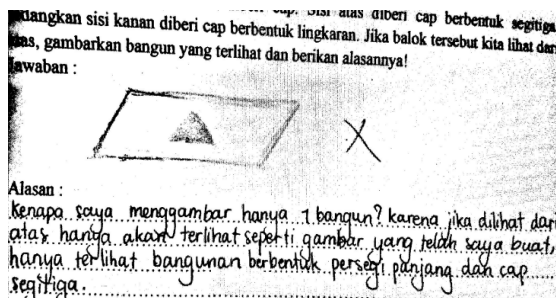 cap. Sisi atas diberi cap berbentuk segitiga
dangkan sisi kanan diberi cap berbentuk lingkaran. Jika balok tersebut kita lihat dari
atas, gambarkan bangun yang terlihat dan berikan alasannya!
Jawaban :
Alasan :
Kenapa saya menggambar hanya 1 bangun? karena jika dilihat dari
atas hanya akan terlihat seperti gambar yang telah saya buat,
hanya terlihat bangunan berbentuk persegi panjang dan cap
segitiga.